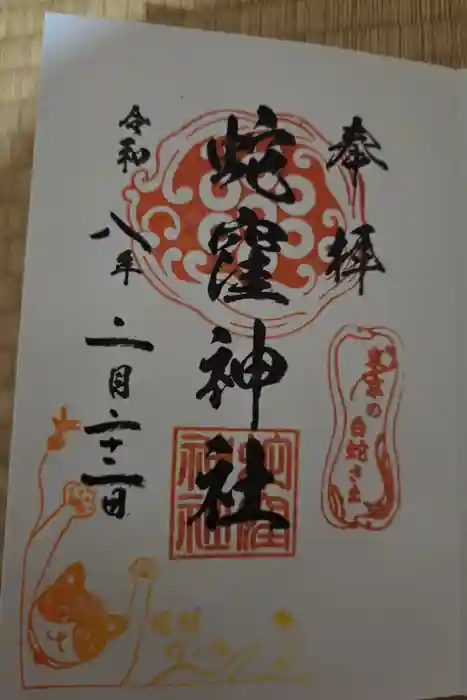 奉拝
蛇窪神社
令和八年二月二十二日
東京の白蛇さま
蛇窪神社